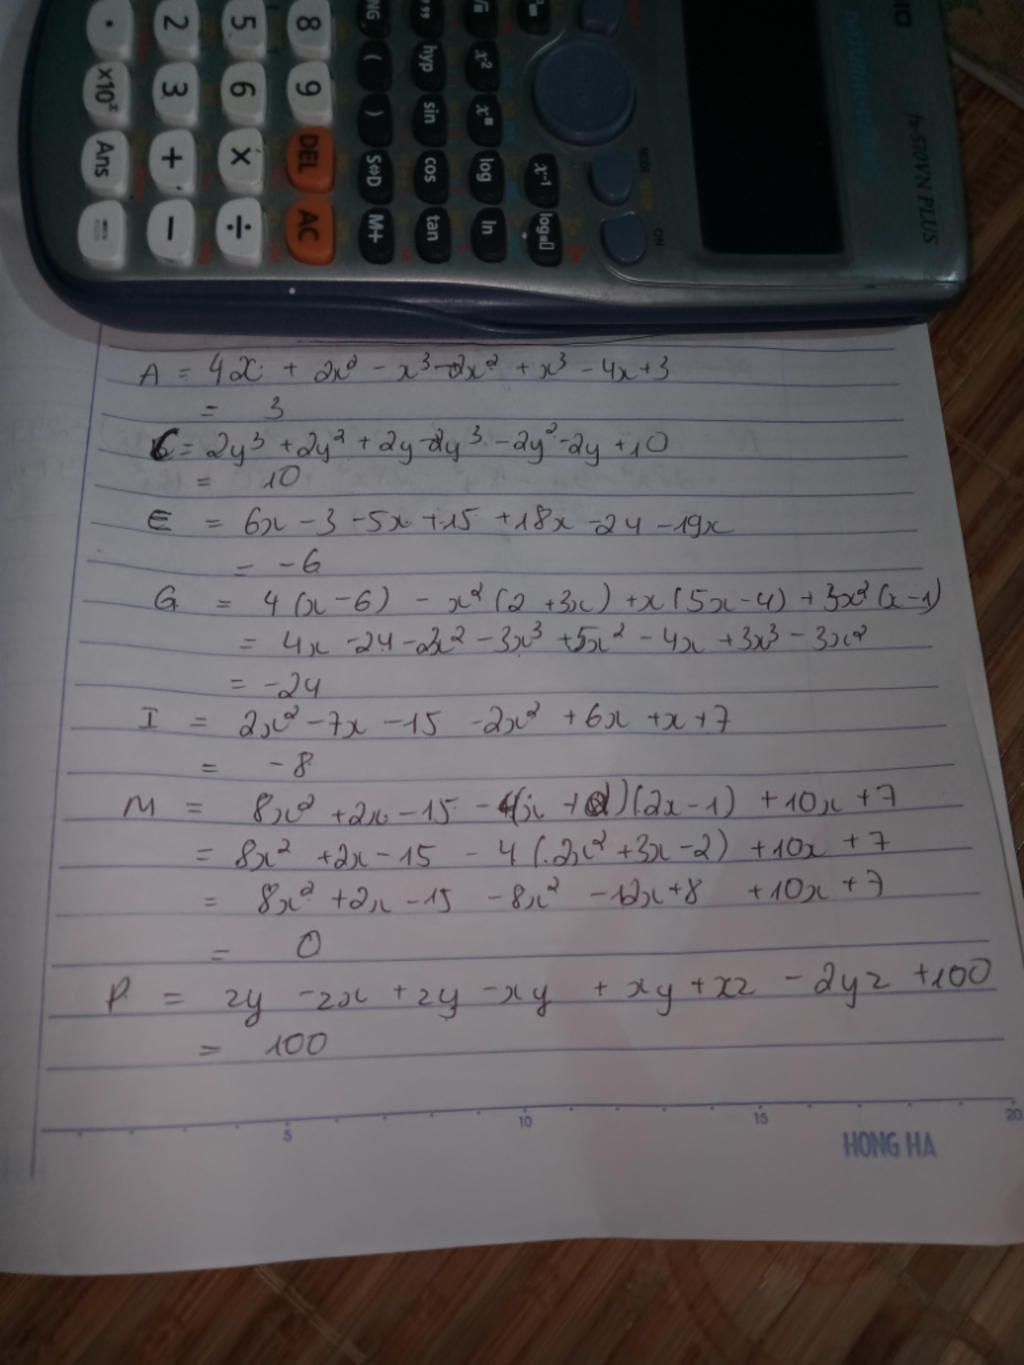 fx-570VN PLUS
MODE
ON
x⁻¹
log
x²
xⁿ
log
ln
hyp
sin
cos
tan
(
)
S⇔D
M+
8
9
DEL
AC
5
6
×
÷
2
3
+
−
•
×10ˣ
Ans
=
A = 4x + 2x² - x³ - 2x² + x³ - 4x + 3
= 3
C = 2y³ + 2y² + 2y - 2y³ - 2y² - 2y + 10
= 10
E = 6x - 3 - 5x + 15 + 18x - 24 - 19x
= -6
G = 4(x - 6) - x²(2 + 3x) + x(5x - 4) + 3x²(x - 1)
= 4x - 24 - 2x² - 3x³ + 5x² - 4x + 3x³ - 3x²
= -24
I = 2x² - 7x - 15 - 2x² + 6x + x + 7
= -8
M = 8x² + 2x - 15 - 4(x + 2)(2x - 1) + 10x + 7
= 8x² + 2x - 15 - 4(2x² + 3x - 2) + 10x + 7
= 8x² + 2x - 15 - 8x² - 12x + 8 + 10x + 7
= 0
P = zy - zx + zy - xy + xy + xz - 2yz + 100
= 100
5 10 15 20
HONG HA